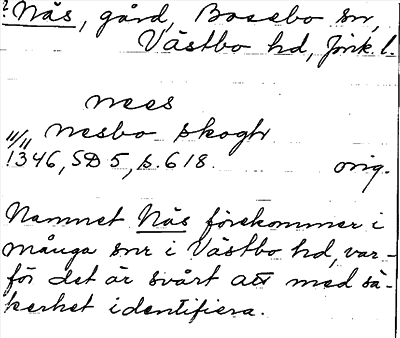 ? Näs, gård, Bosebo snr,
Västbo hd, Jönk. l.
nees
"/11 nesbo skoghr
1346, SD 5, s. 618. orig.
Namnet Näs förekommer i
många snr i Västbo hd, var-
för det är svårt att med sä-
kerhet identifiera.